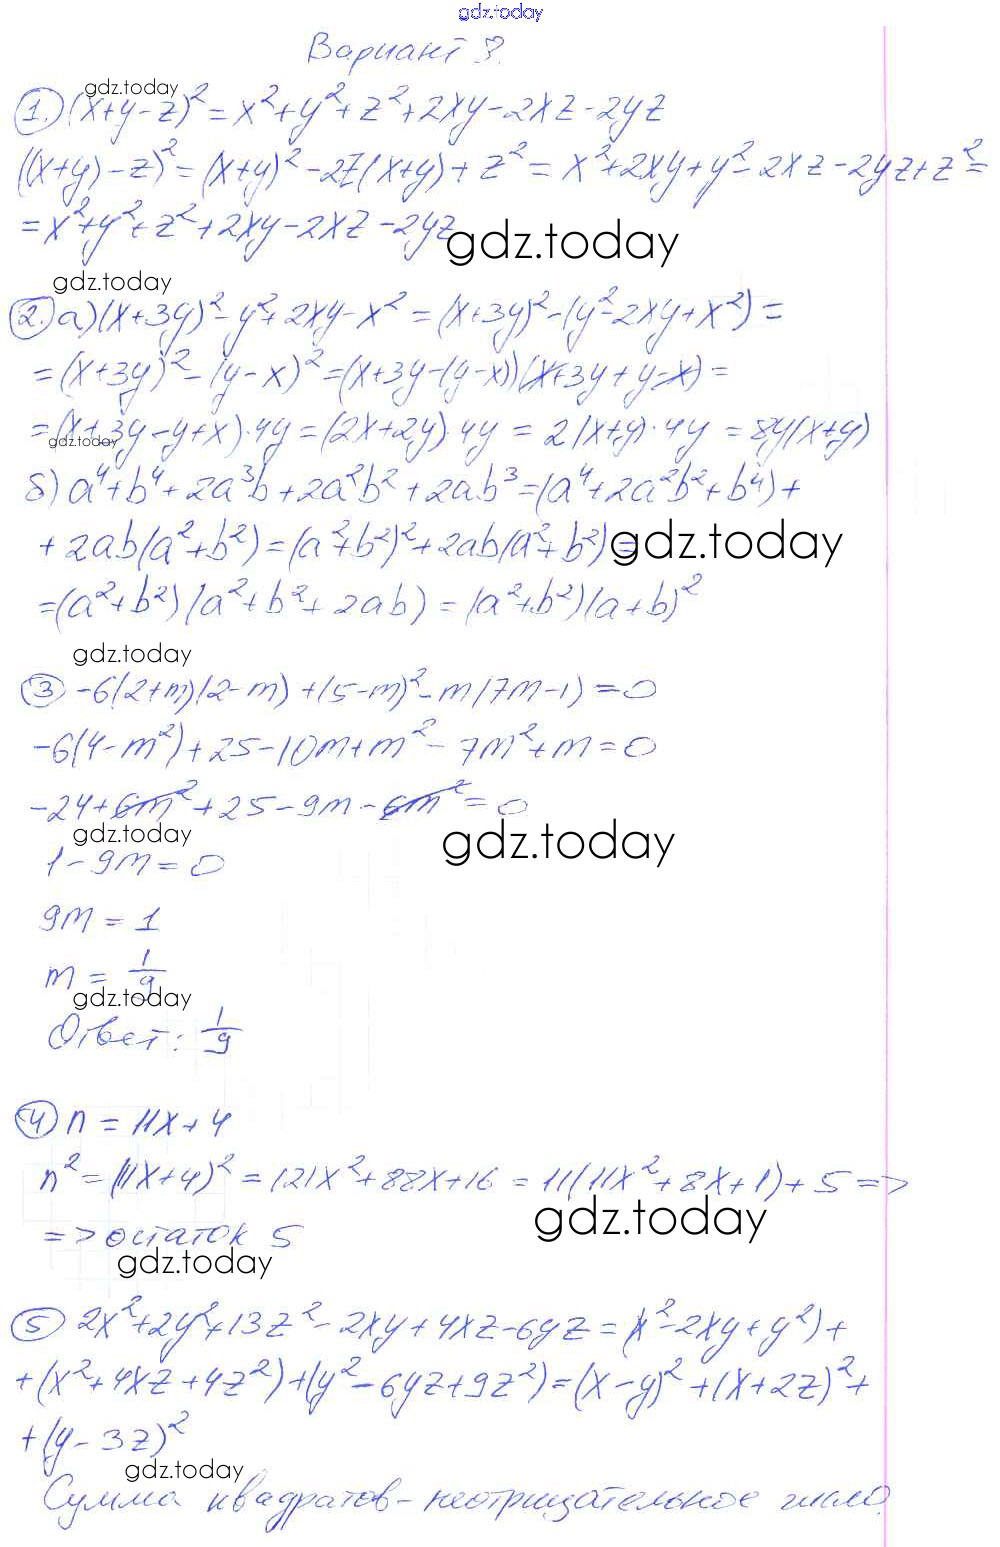 gdz.today
Вариант 3.
gdz.today
1. (x+y-z)² = x²+y²+z²+2xy-2xz-2yz
((x+y)-z)² = (x+y)²-2z(x+y)+z² = x²+2xy+y²-2xz-2yz+z² =
= x²+y²+z²+2xy-2xz-2yz
gdz.today
gdz.today
2. а) (x+3y)²-y²+2xy-x² = (x+3y)²-(y²-2xy+x²) =
= (x+3y)²-(y-x)² = (x+3y-(y-x))(x+3y+y-x) =
= (x+3y-y+x)·4y = (2x+2y)·4y = 2(x+y)·4y = 8y(x+y)
gdz.today
б) a⁴+b⁴+2a³b+2a²b²+2ab³ = (a⁴+2a²b²+b⁴)+
+2ab(a²+b²) = (a²+b²)²+2ab(a²+b²) =
gdz.today
= (a²+b²)(a²+b²+2ab) = (a²+b²)(a+b)²
gdz.today
3 -6(2+m)(2-m)+(5-m)²-m(7m-1) = 0
-6(4-m²)+25-10m+m²-7m²+m = 0
-24+6m²+25-9m-6m² = 0
gdz.today
gdz.today
1-9m = 0
9m = 1
m = 1/9
gdz.today
Ответ: 1/9
4 n = 11x+4
n² = (11x+4)² = 121x²+88x+16 = 11(11x²+8x+1)+5 =>
gdz.today
=> остаток 5
gdz.today
5 2x²+2y²+13z²-2xy+4xz-6yz = (x²-2xy+y²)+
+(x²+4xz+4z²)+(y²-6yz+9z²) = (x-y)²+(x+2z)²+
+(y-3z)²
gdz.today
Сумма квадратов - неотрицательное число.